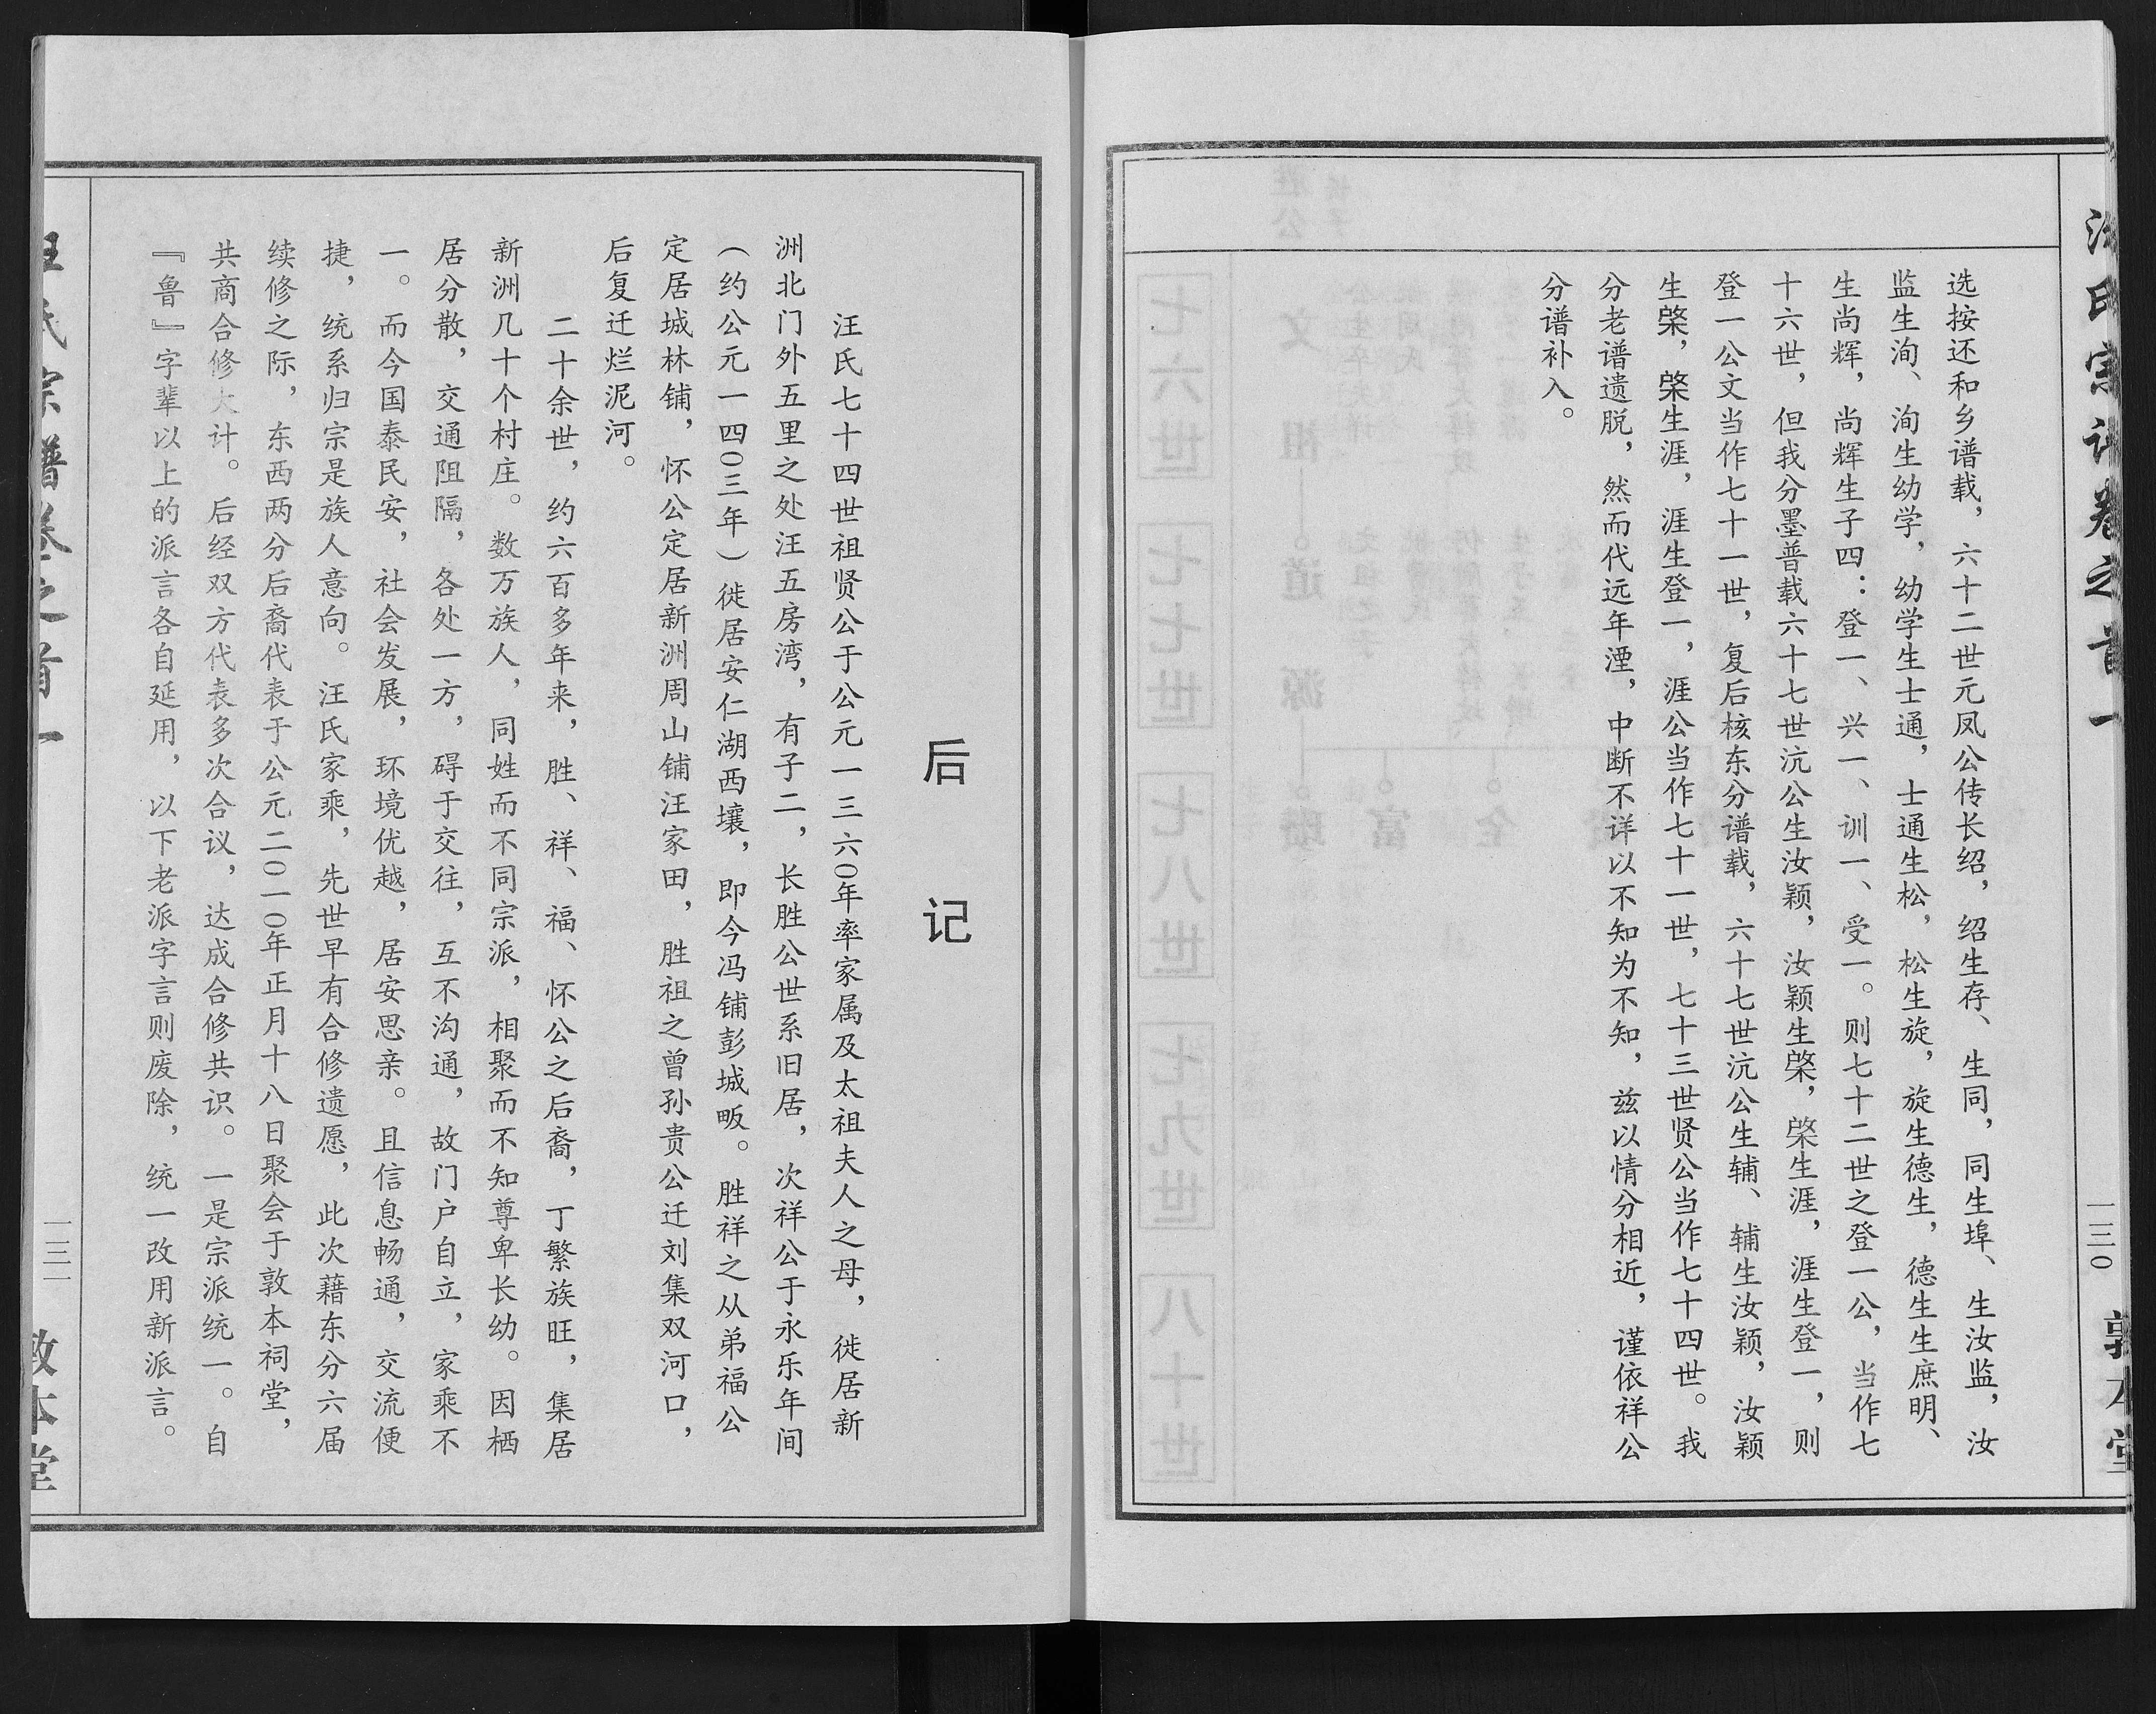 汪氏宗谱卷之首一
一三〇
敦本堂
选按还和乡谱载，六十二世元凤公传长绍，绍生存、生同，同生埠、生汝监，汝
监生洵、洵生幼学，幼学生士通，士通生松，松生旋，旋生德生，德生生庶明、
生尚辉，尚辉生子四：登一、兴一、训一、受一。则七十二世之登一公，当作七
十六世，但我分墨普载六十七世沆公生汝颖，汝颖生棨，棨生涯，涯生登一，则
登一公文当作七十一世，复后核东分谱载，六十七世沆公生辅、辅生汝颖，汝颖
生棨，棨生涯，涯生登一，涯公当作七十一世，七十三世贤公当作七十四世。我
分老谱遗脱，然而代远年湮，中断不详以不知为不知，兹以情分相近，谨依祥公
分谱补入。
后记
汪氏七十四世祖贤公于公元一三六〇年率家属及太祖夫人之母，徙居新
洲北门外五里之处汪五房湾，有子二，长胜公世系旧居，次祥公于永乐年间
（约公元一四〇三年）徙居安仁湖西壤，即今冯铺彭城畈。胜祥之从弟福公
定居城林铺，怀公定居新洲周山铺汪家田，胜祖之曾孙贵公迁刘集双河口，
后复迁烂泥河。
二十余世，约六百多年来，胜、祥、福、怀公之后裔，丁繁族旺，集居
新洲几十个村庄。数万族人，同姓而不同宗派，相聚而不知尊卑长幼。因栖
居分散，交通阻隔，各处一方，碍于交往，互不沟通，故门户自立，家乘不
一。而今国泰民安，社会发展，环境优越，居安思亲。且信息畅通，交流便
捷，统系归宗是族人意向。汪氏家乘，先世早有合修遗愿，此次藉东分六届
续修之际，东西两分后裔代表于公元二〇一〇年正月十八日聚会于敦本祠堂，
共商合修大计。后经双方代表多次合议，达成合修共识。一是宗派统一。自
『鲁』字辈以上的派言各自延用，以下老派字言则废除，统一改用新派言。
汪氏宗谱卷之首一
一三一
敦本堂